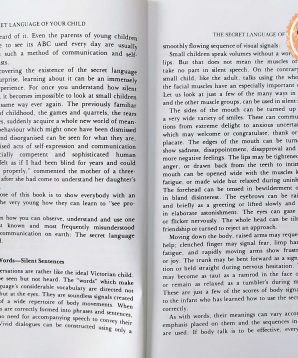 ET LANGUAGE OF YOUR CHILD
eard of it. Even the parents of young children
e to see its ABC used every day are usually
such a method of communication and self-
ists.
covering the existence of the secret language
rprise, learning about it can be an immensely
perience. For once you understand how silent
it becomes impossible to look at small children
same way ever again. The previously familiar
f childhood, the games and quarrels, the tears
es, suddenly acquire a whole new world of mean-
behaviour which might once have been dismissed
nd disorganised can be seen for what they are:
ised acts of self-expression and communication
cially competent and sophisticated human
felt as if I had been blind for years and could
properly," commented the mother of a three-
after she had come to understand her daughter's
ose of this book is to show everybody with an
he very young how they can learn to "see pro-
how you can observe, understand and use one
st known and most frequently misunderstood
ommunication on earth: The secret language
rds—Silent Sentences
ersations are rather like the ideal Victorian child.
e seen but not heard. The "words" which make
guage's considerable vocabulary are directed not
but at the eyes. They are soundless signals created
of a wide repertoire of body movements. When
s are correctly formed into phrases and sentences,
no need for accompanying speech to convey their
Vivid dialogues can be constructed using only a
THE SECRET LANGUAGE OF
smoothly flowing sequence of visual signals
Small children speak volumes without a wor
lips. But this does not mean the muscles or
take no part in silent speech. On the contrary
small child, like the adult, talks using the who
the facial muscles have an especially important
Let us look at just a few of the many ways in
and the other muscle groups, can be used in silent
The sides of the mouth can be turned up
a very wide variety of smiles. These can commu
tions from extreme delight to anxious uncertai
which may welcome or congratulate, thank or
placate. The edges of the mouth can be turn
show sadness, disappointment, disapproval and
more negative feelings. The lips may be tightened
anger, or drawn back from the teeth to intim
mouth can be opened wide with the muscles
fatigue, or made wide but relaxed during uninhi
The forehead can be tensed in bewilderment o
in bland disinterest. The eyebrows can be rais
and briefly as a greeting or lifted slowly and
in elaborate astonishment. The eyes can gaze
or flicker nervously. The whole head can be tilt
friendship or turned to reject an approach.
Moving down the body, raised arms may reque
help; clenched finger may signal fear, limp han
fatigue, and rapidly moving arms show frustr
or joy. The trunk may be bent forward as a sign
tion or held straight during nervous hesitation.
may become as taut as a ramrod in the face o
or remain as relaxed as a tumbler's during m
These are just a few of the scores of body signs
to the infant who has learned how to use the secr
correctly.
As with words, their meanings can vary accor
emphasis placed on them and the sequences in
are used. If body talk is to be effective, eve